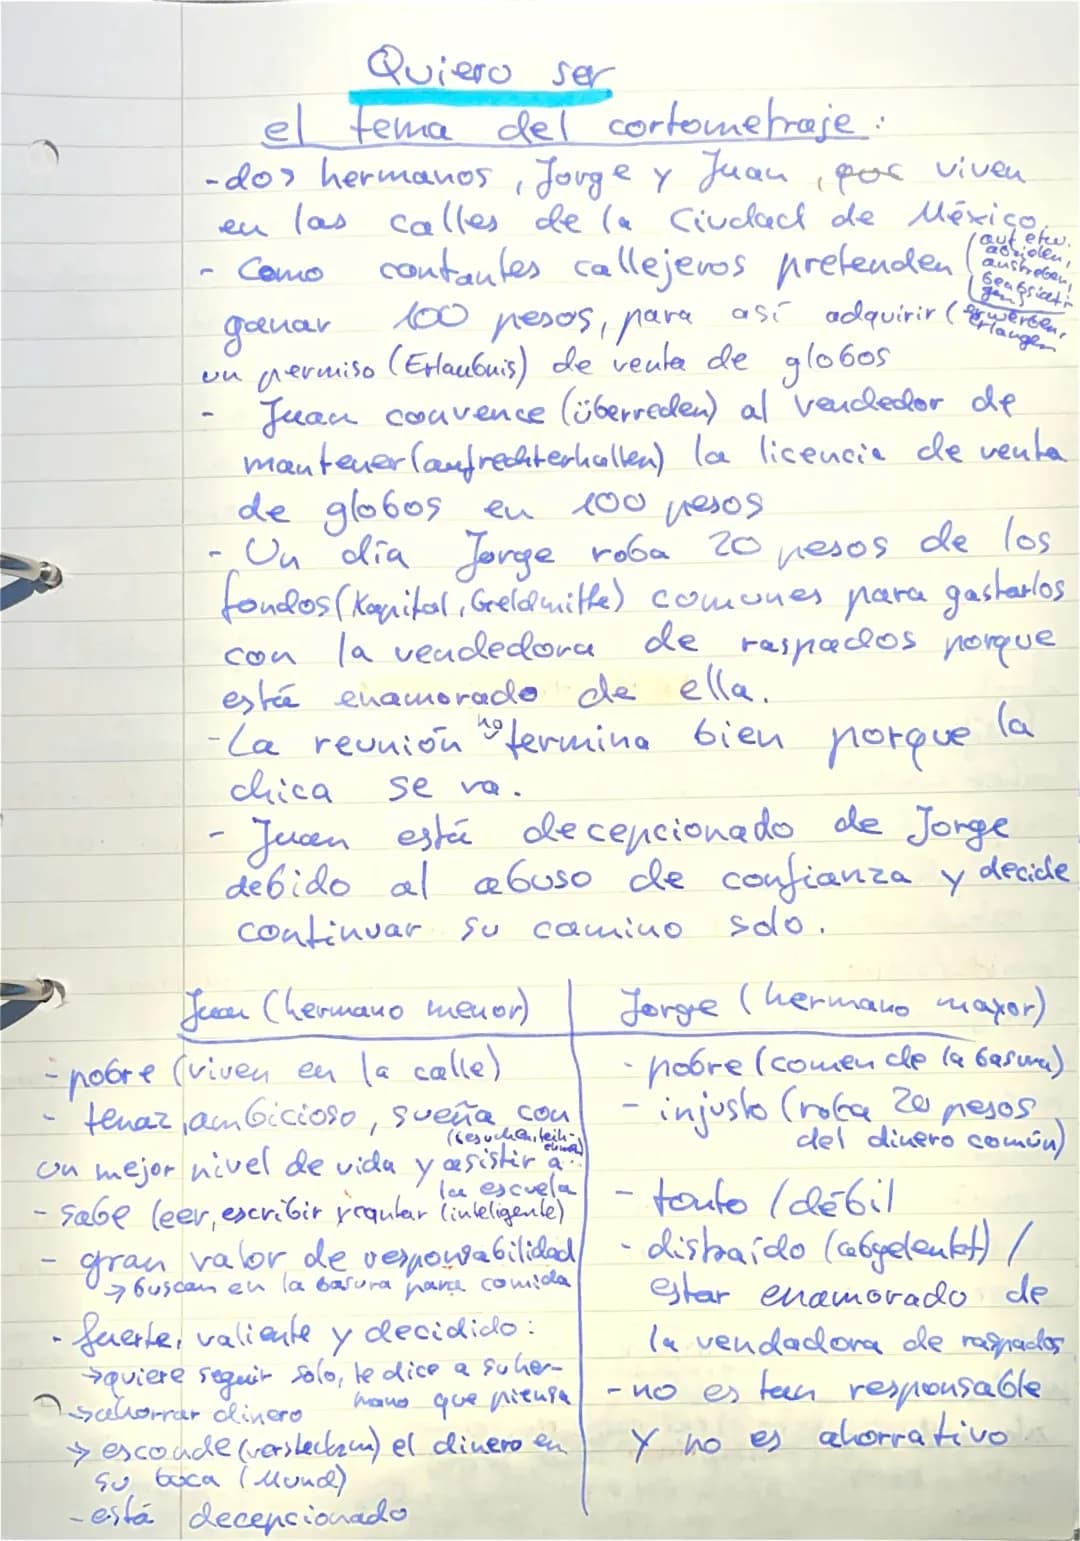 Quiero ser
el tema del cortometraje:
- dos hermanos, Jorge y Juan, viven
en las calles de la Ciudad de México.
- Como cantantes callejeros pretenden (auf etw. abzielen, anstreben, beabsichtigen)
ganar 100 pesos, para así adquirir (erwerben, erlangen)
un permiso (Erlaubnis) de venta de globos
- Juan convence (überreden) al vendedor de
mantener (aufrechterhalten) la licencia de venta
de globos en 100 pesos
- Un día Jorge roba 20 pesos de los
fondos (Kapital, Geldmitte) comunes para gastarlos
con la vendedora de raspados porque
está enamorado de ella.
- La reunión no termina bien porque la
chica se va.
- Juan está decepcionado de Jorge
debido al abuso de confianza y decide
continuar su camino solo.
Juan (hermano menor)
- pobre (viven en la calle)
- tenaz, ambicioso, sueña con
un mejor nivel de vida y asistir a (besuchen, teilnehmen)
la escuela
- sabe leer, escribir y (inteligente)
- gran valor de responsabilidad
→ buscan en la basura para comida
- fuerte, valiente y decidido:
→ quiere seguir solo, le dice a su her-
mano que piensa
→ ahorrar dinero
→ esconde (verstecken) el dinero en
su boca (Mund)
- está decepcionado
Jorge (hermano mayor)
- pobre (comen de la basura)
- injusto (roba 20 pesos
del dinero común)
- tonto / débil
- distraído (abgelenkt) /
estar enamorado de
la vendadora de raspados
- no es tan responsable
y no es ahorrativo